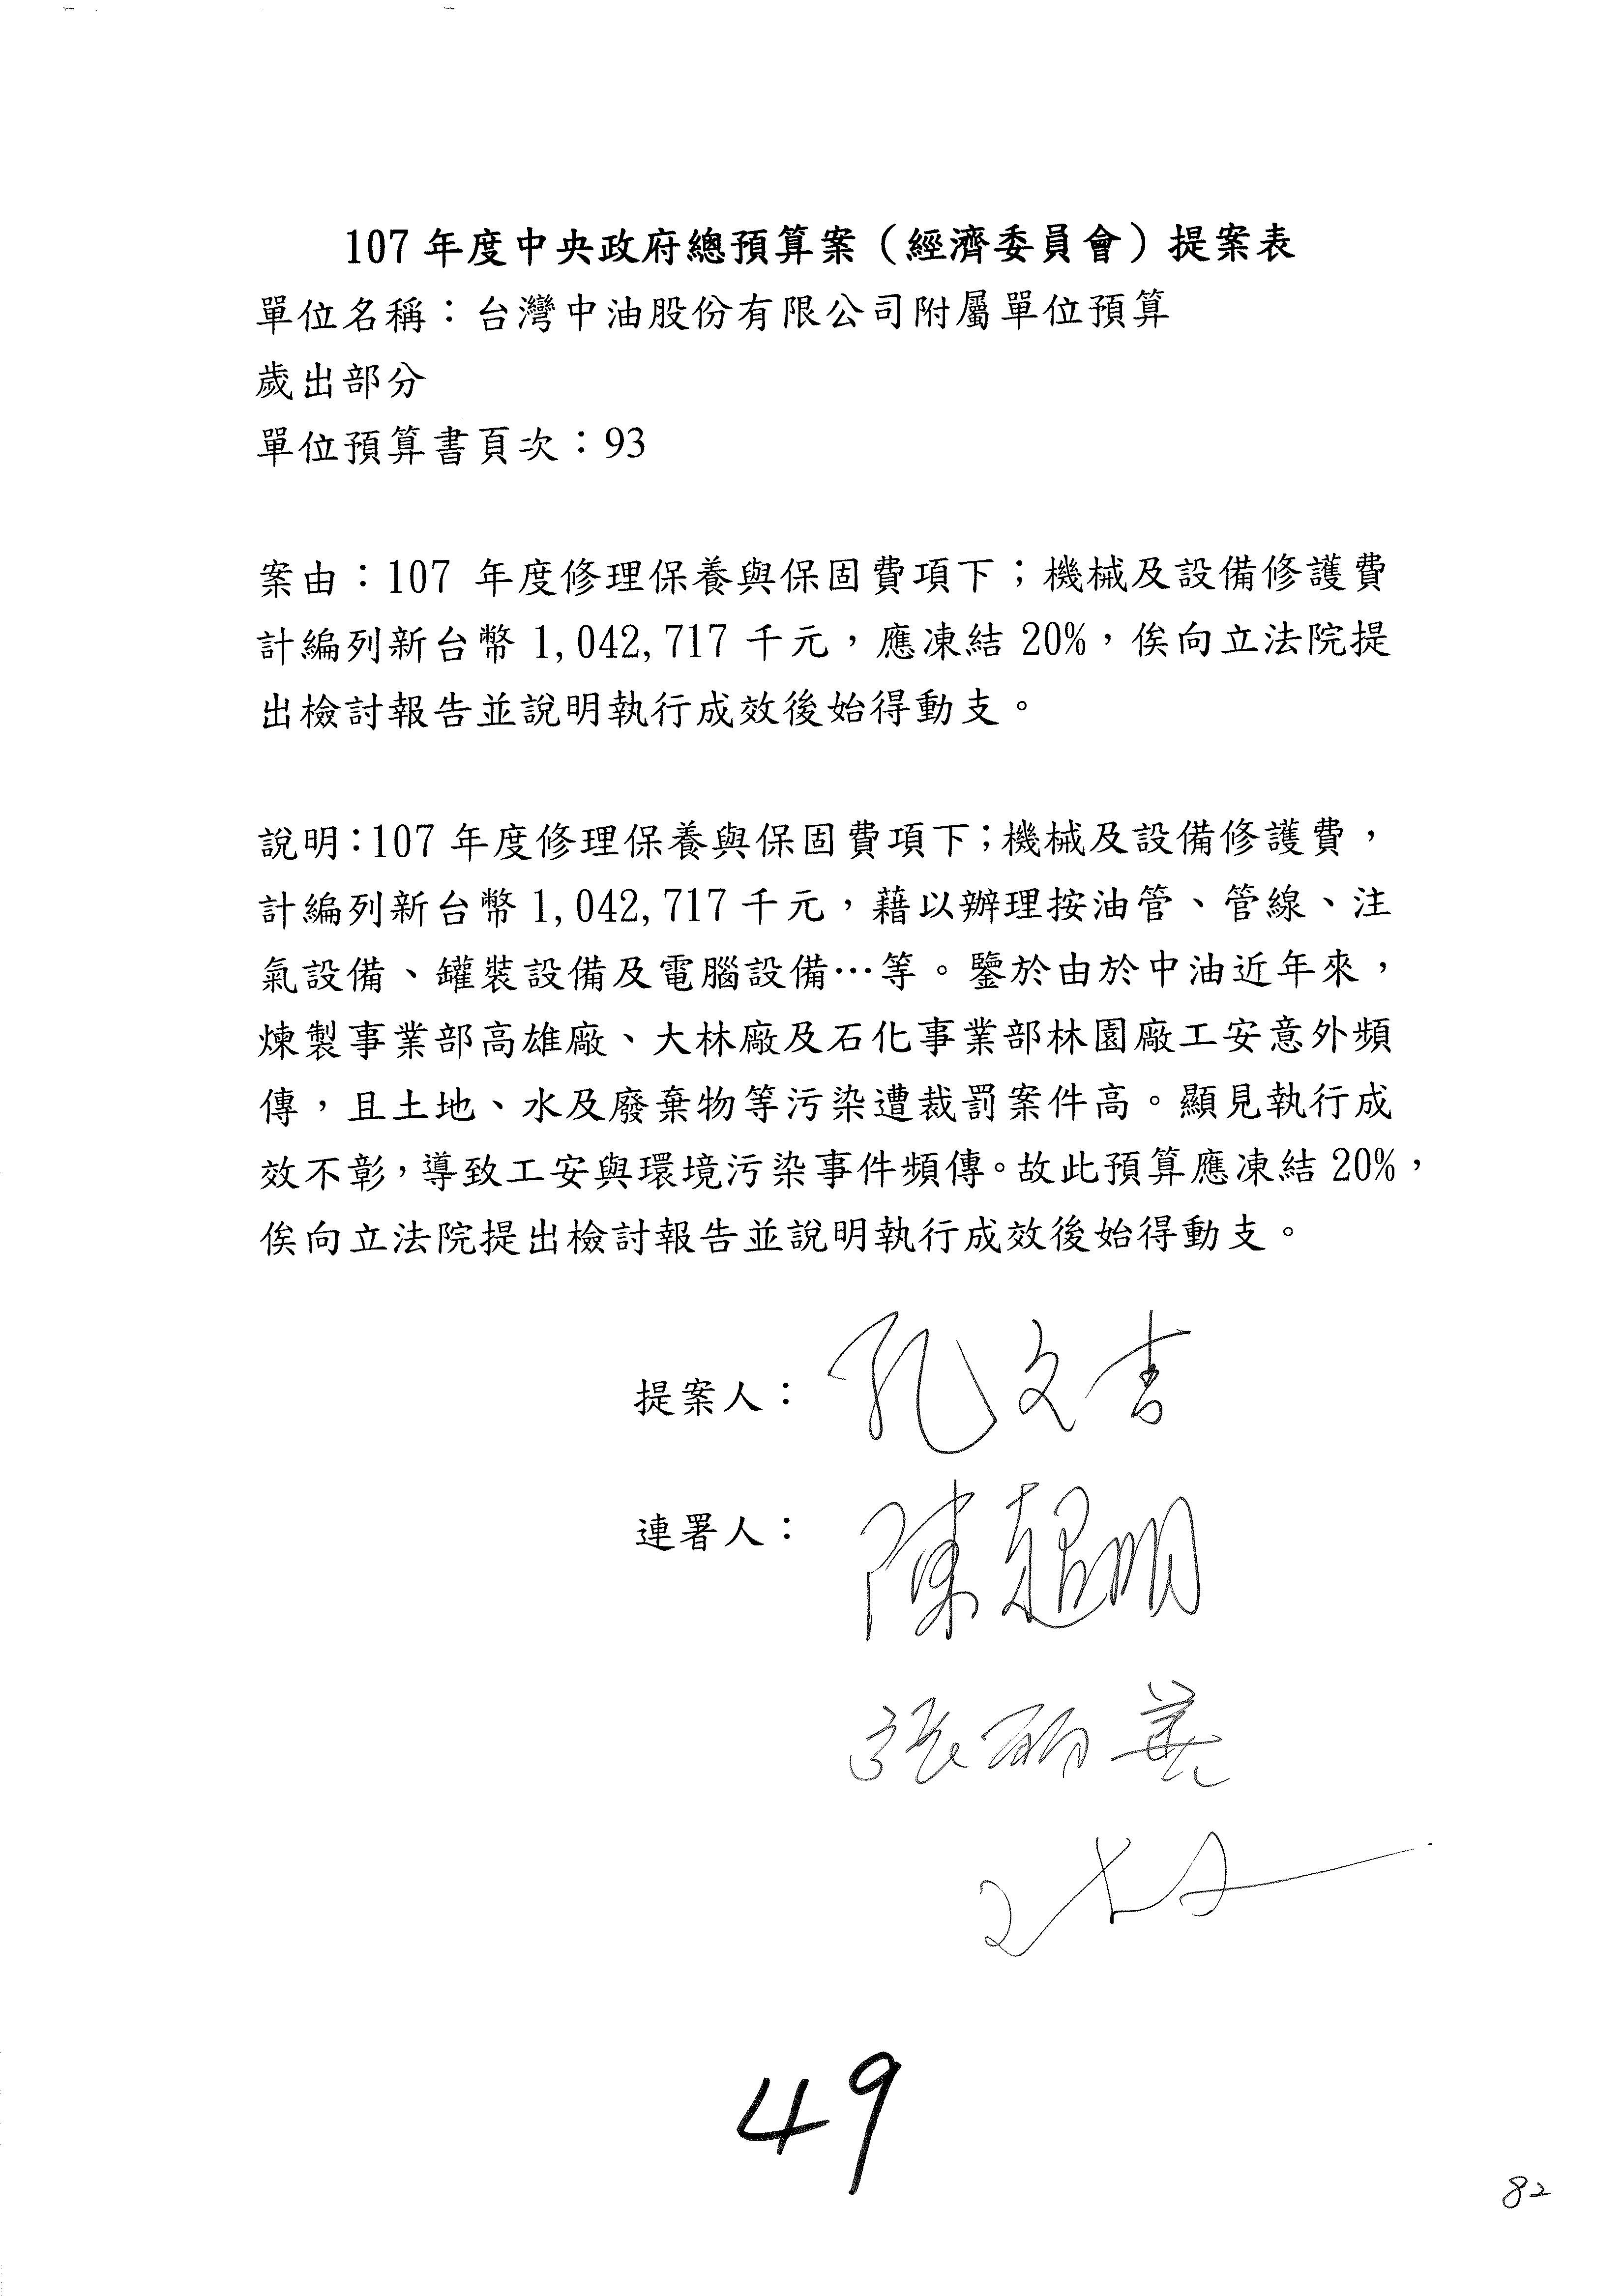 107 年度中央政府總預算案（經濟委員會）提案表
單位名稱：台灣中油股份有限公司附屬單位預算
歲出部分
單位預算書頁次：93
案由：107 年度修理保養與保固費項下；機械及設備修護費
計編列新台幣 1,042,717 千元，應凍結 20%，俟向立法院提
出檢討報告並說明執行成效後始得動支。
說明：107 年度修理保養與保固費項下；機械及設備修護費，
計編列新台幣 1,042,717 千元，藉以辦理按油管、管線、注
氣設備、罐裝設備及電腦設備…等。鑒於由於中油近年來，
煉製事業部高雄廠、大林廠及石化事業部林園廠工安意外頻
傳，且土地、水及廢棄物等污染遭裁罰案件高。顯見執行成
效不彰，導致工安與環境污染事件頻傳。故此預算應凍結 20%，
俟向立法院提出檢討報告並說明執行成效後始得動支。
提案人：孔文吉
連署人：陳超明
張麗善
49
82